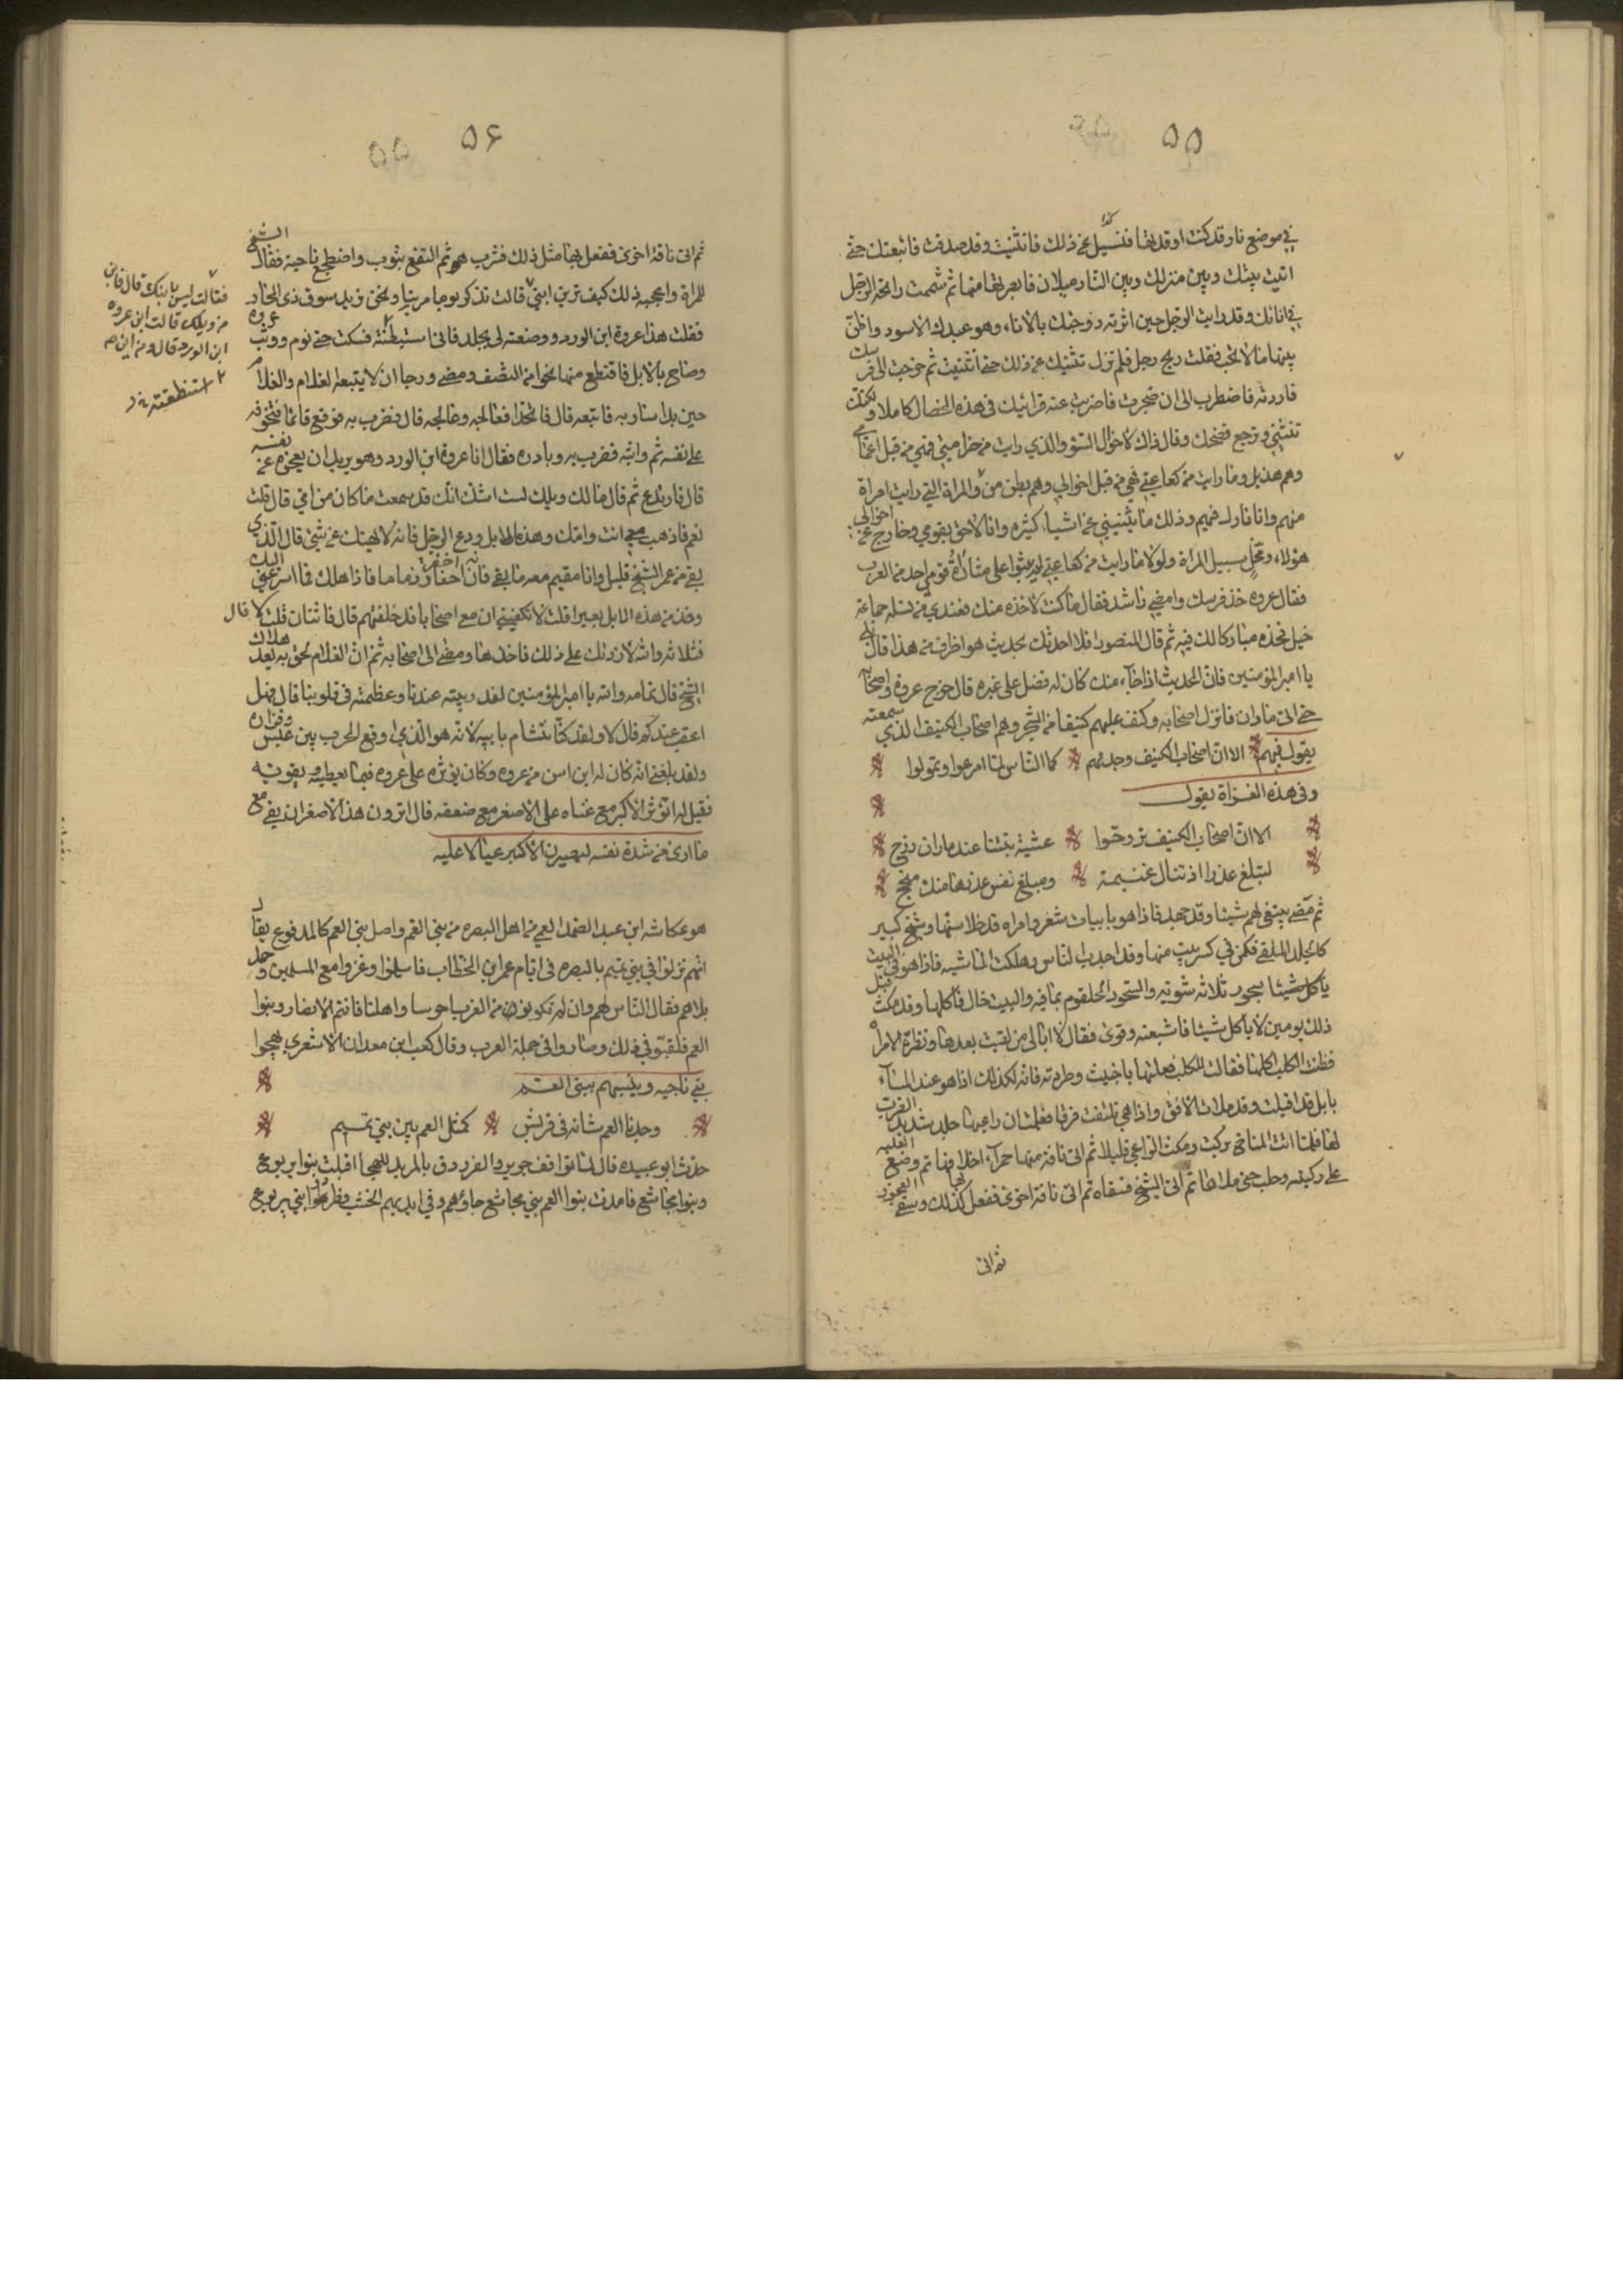 ۵۵
في موضع نار وقد كنت اوقدتها فننسيل عن ذلك فانثنيت وقد صدقت فاتبعتك حتى
اتيت بيتك وبين منزلك وبين النار ميلان فابصرتها منها ثم شممت رائحة الرجل
في انائك وقد رايت الرجل حين اثرته زوجتك بالاناء وهو عبدك الاسود واظن
بينهما ما لا تحب فقلت ريح رجل فلم تزل تثنيك عن ذلك حتى انثنيت ثم خرجت الى فرسك
فاردته فاضطرب الى ان ضجرت فاضربت عنه فرايتك في هذه الخصال كاملا ولكنك
تنثني وترجع فضحك وقال ذاك لاخوال السوء والذي رايت من صرامتي فمن قبل اعمامي
وهم هذيل وما رايت من كعاعتي فهي من قبل اخوالي وهم بطن من والمراة التي رايت امراة
منهم وانا نازل فيهم وذلك ما يثنيني عن اشياء كثيره وانا لاحق بقومي وخارج عن اخوالي
هؤلاء ومخل سبيل المراة ولولا ما رايت من كعاعتي لم يقوا على مناواة قومي احد من العرب
فقال عروه خذ فرسك وامضي راشدا فقال ما كنت لاخذه منك فعندي من نسله جماعة
خيل فخذه مباركا لك فيه ثم قال المنصور افلا احدثك بحديث هو اظرف من هذا قال بلى
يا امير المؤمنين فان الحديث اذا جآء منك كان له فضل على غيره قال خرج عروة واصحابه
حتى اتى ماوان فانزل اصحابه وكنف عليهم كنيفا من الشجر وهم اصحاب الكنيف الذي سمعته
يقول فيهم الا ان اصحاب الكنيف وجدتهم كما الناس لما امرعوا وتمولوا
وفي هذه الغزاة يقول
الا ان اصحاب الكنيف تروحوا عشية بتنا عند ماوان رزح
لتبلغ عذرا او تنال غنيمة ومبلغ نفس عذرها مثل منجح
ثم مضى يبتغي لهم شيئا وقد جهد فاذا هو بابيات شعر وامراه قد خلا سنها وشيخ كبير
كالجلد الملقى فكمن في كسر بيت منها وقد اجدب الناس وهلكت الماشيه فاذا هو في البيت
بسحور ثلاثة مشويه والسحور الحلقوم بما فيه والبيت خال فاكلها وقد مكث قبل
ذلك يومين لا ياكل شيئا فاشبعته وقوى فقال لا ابالي من لقيت بعدها ونظرت الامراه
فظنت الكلب اكلها فقالت للكلب فعلتها يا خبيث وطردته فانه لكذلك اذا هو عند المسآء
بابل قد اقبلت وقد ملات الافق واذا هي تلتفت فرقا فعلمت ان راعيها جلد شديد الضرب
لها فلما اتت المناخ بركت ومكث الراعي قليلا ثم اتى ناقة منها فمرى اخلافها ثم وضع العلبه
على ركبته وحلب حتى ملاها ثم اتى الشيخ فسقاه ثم اتى ناقة اخرى ففعل بها كذلك وسقى العجوز
ثم اتى
۵۶
۵۵
ثم اتى ناقة اخرى ففعل بها مثل ذلك فشرب هو ثم التفع بثوب واضطجع ناحية فقال الشيخ
للمراة واعجبه ذلك كيف ترين ابني قالت تذكر يوما مر بنا ونحن نريد سوق ذي المجاز
فقلت هذا عروة ابن الورد ووصفته لي بجلد فاني استبطنته فسكت حتى نوم ووثب عروه
وصاح بالابل فاقتطع منها نحوا من النصف ومضى ورجا ان لا يتبعه الغلام والغلام
حين بدا شاربه فاتبعه قال فاتخذا فعالجه وعالجه قال فضرب به فوقع قائما فتخوفه
على نفسه ثم واثبه فضرب به وبادره فقال انا عروة ابن الورد وهو يريد ان يعجزه عن نفسه
قال فارتدع ثم قال مالك ويلك لست اشك انك قد سمعت ما كان من امي قال قلت
نعم فاذهب معي انت وامك وهذه الابل ودع الرجل فانه لا يهنيك عن شئ قال الذي
بقي من عمر الشيخ قليل وانا مقيم معه ما بقي فان له حقا وذماما فاذا هلك فما اسرعني اليك
وخذ من هذه الابل بعيرا قلت لا يكفيني ان مع اصحابا قد خلفتهم قال فاثنان قلت لا قال
فثلاثه والله لا زدتك على ذلك فاخذها ومضى الى اصحابه ثم ان الغلام لحق به بعد هلاك
الشيخ قال تمامه والله يا امير المؤمنين لقد زينته عندنا وعظمته في قلوبنا قال فهل
اعقب عندكم قال لا ولقد كنا نتشام بابيه لانه هو الذي اوقع الحرب بين عبس وفزاره
ولقد بلغني انه كان له ابن اسن من عروه وكان يؤثره على عروه فيما يعطيه ويقربه
فقيل له اتوثر الاكبر مع غناه على الاصغر مع ضعفه قال اترون هذا الاصغر ان بقي مع
ما ارى من شدة نفسه ليصيرن الاكبر عيالا عليه
هو عكاشه ابن عبد الصمد العمي من اهل البصره من بني العم واصل بني العم كالمدفوع يقال
انهم نزلوا في بني تميم بالبصره في ايام عمر ابن الخطاب فاسلموا وغزوا مع المسلمين وحمد
بلاهم فقال الناس لهم وان لم تكونوا من العرب اخوسا واهلنا فانتم الانصار وبنوا
العم فلقبو في ذلك وصاروا في جملة العرب وقال كعب ابن معدان الاشعري يهجوا
بني ناجيه ويشبههم ببنى العم
وجدنا العم شانه في قريش كمثل العم بين بني تميم
حدث ابو عبيده قال لما تواقف جرير والفرزدق بالمربد للهجا اقبلت بنوا يربوع
وبنوا مجاشع فامدت بنوا العم بني مجاشع جاؤهم وفي ايديهم الخشب فطردوا بني يربوع
فقالت ليس بابنك قال فابن
من ويلك قالت ابن عروه
ابن الورد قال ومن اين